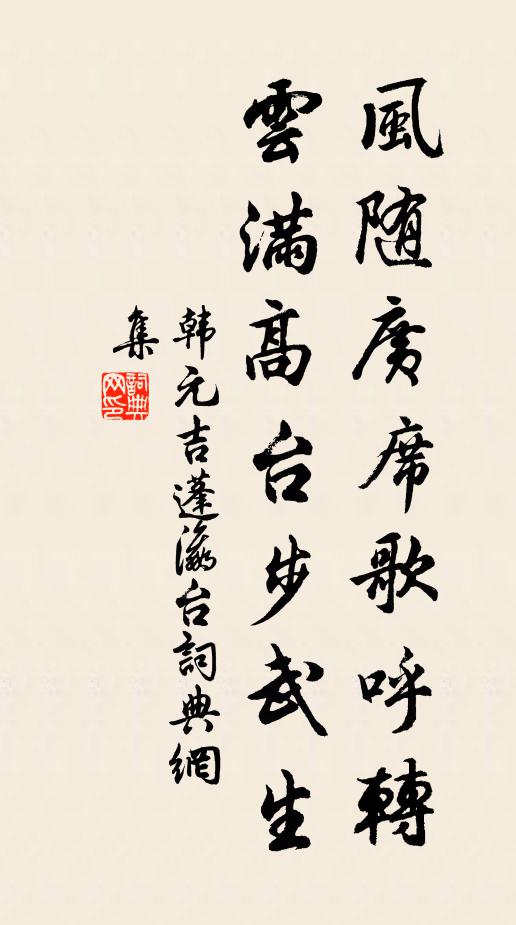 風随廣席歌呼轉
雲滿高台步武生
韩元吉蓬瀛台詞典網
集
詞典
网印